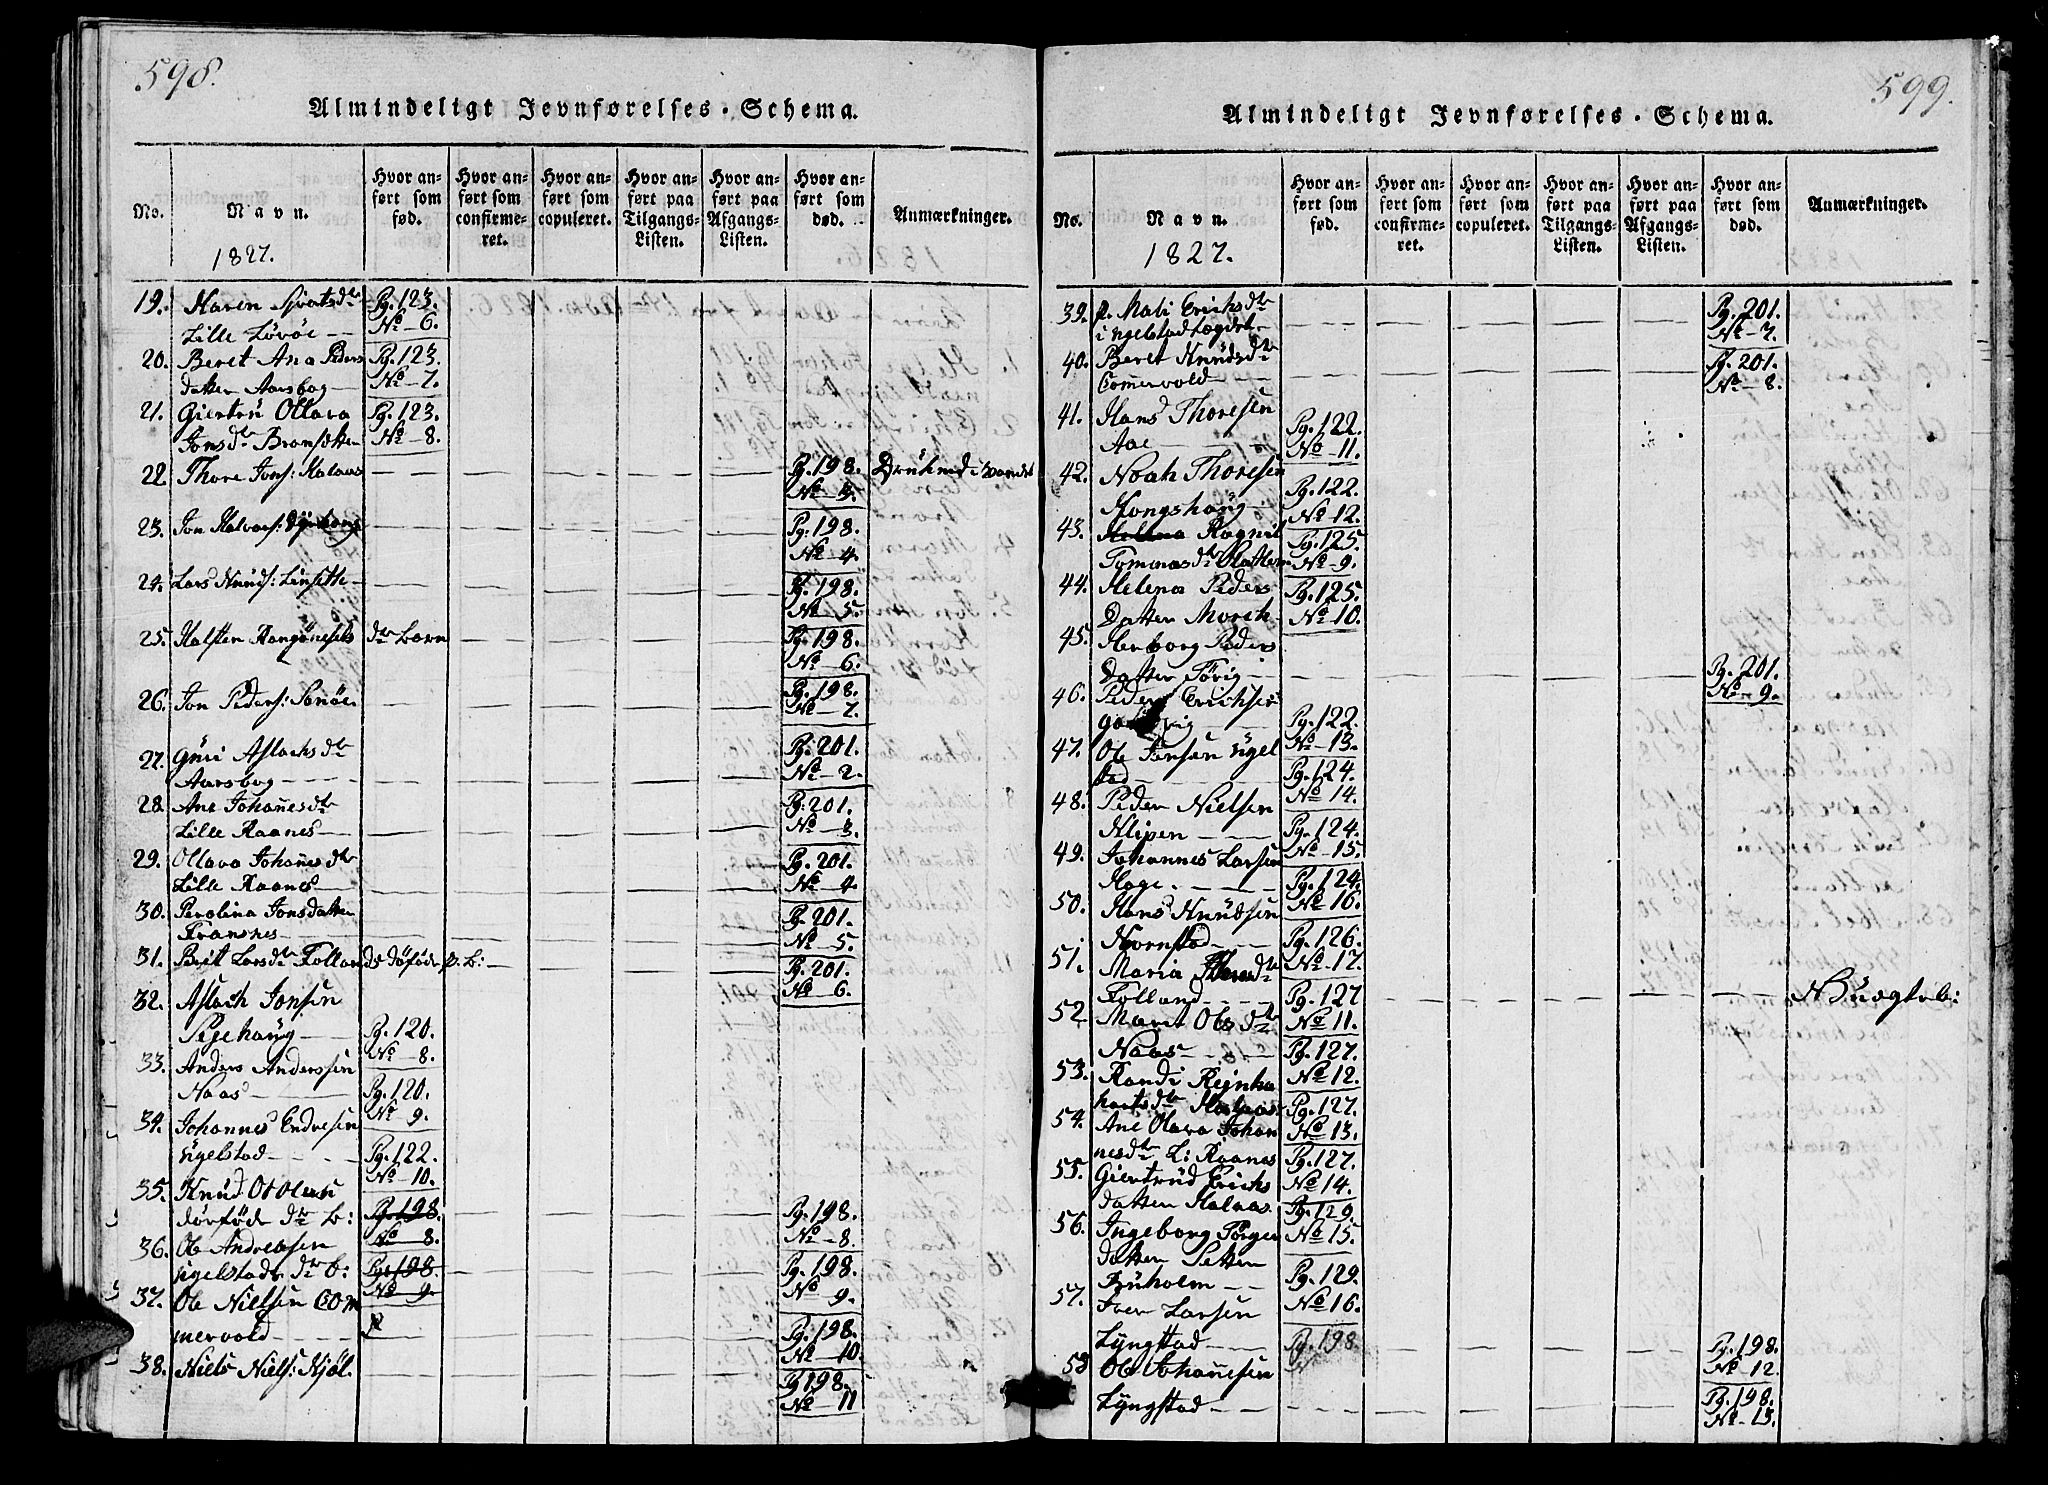 598.
Almindeligt Jevnførelses-Schema.
No.
Navn.
1827.
Hvor anført som fød.
Hvor anført som confirmeret.
Hvor anført som copuleret.
Hvor anført paa Tilgangs-Listen.
Hvor anført paa Afgangs-Listen.
Hvor anført som død.
Anmærkninger.
19. Maren Sivertsdr Pg. 123.
Lille Lövöe — No 6.
20. Beret Ana Peders Pg. 123.
datter Aarsbog — No 7.
21. Giertrü Ollava Pg. 123.
Jonsdr Bransdtten No 8.
22. Thore Jons: Halaas — Pg. 198. Drükned i Vandet
No 3.
23. Jon Halvors: — Pg. 198.
No 4.
24. Lars Knüds: — Pg. 198.
No 5.
25. Halsten dr barn — Pg. 198.
No 6.
26. Jon Peders: Sonöe — Pg. 198.
No 7.
27. Güri Aslachsdr Pg. 201.
Aarsbog — No 2.
28. Ane Johanesdr Pg: 201.
Lille Raanes — No 3.
29. Ollava Johanesdr Pg. 201.
Lille Raanes — No 4.
30. Perolina Jonsdatter Pg. 201.
Fransnes — No 5.
31. Berit Larsdr Follands döföde p. b: — Pg. 201.
No 6.
32. Aslach Jonsen
Pegehaüg — Pg. 120.
No 8.
33. Anders Anderssen
Naas — Pg. 120.
No 9.
34. Johannes Endresen
Ugelstad — Pg. 122.
No 10.
35. Knüd Olsen
dörföde dr b: Pg. 198. Pg. 198.
No 8. No 8.
36. Ole Andreasen
Ugelstads dr b: Pg. 198. Pg. 198.
No 9. No 9.
37. Ole Nielsen Com
mervold — Pg. 198.
No 10.
38. Niels Niels: Kjöl. — Pg 198.
No 11
599.
Almindeligt Jevnførelses-Schema.
No.
Navn.
1827.
Hvor anført som fød.
Hvor anført som confirmeret.
Hvor anført som copuleret.
Hvor anført paa Tilgangs-Listen.
Hvor anført paa Afgangs-Listen.
Hvor anført som død.
Anmærkninger.
39. p. Mali Erichsdr Pg. 201.
i Ugelstadlægdet — No 7.
40. Beret Knüdsdr Pg. 201.
Comervold — No 8.
41. Hans Thoresen Pg. 122.
Aae — No 11.
42. Noah Thoresen Pg. 122.
Kongshaüg — No 12.
43. Helena Ragnil Pg. 125.
Tommasdr No 9.
44. Helena Peders Pg. 125.
Datter Moreh No 10.
45. Herborg Peders
Datter Törig — Pg. 201.
No 9.
46. Peder Erichsen
Pg. 122.
No 13.
47. Ole Jonsen Ugel
stad — Pg. 124.
No 14.
48. Peder Nielsen
Klipen — Pg. 124.
No 15.
49. Johannes Larsen
Hage. — Pg. 124.
No 16.
50. Hans Knüdsen
Nornstad — Pg. 126.
No 17.
51. Maria
Folland — Pg. 127 NB uægte b:
No 11.
52. Marit Olsdr
Naas — Pg. 127.
No 12.
53. Randi Rejnha
hartsdr Halaas. Pg. 127.
No 13.
54. Ane Olava Johan
nesdr L: Raanes Pg. 127.
No 14.
55. Giertrüd Erichs
datter Halaas. Pg. 129.
No 15.
56. Ingeborg Törger
datter Setter
Büholm — Pg. 129.
No 16.
57. Iver Larsen
Lÿngstad — Pg. 198 Pg. 198.
No 12.
58 Ole Johanesen
Lÿngstad — Pg. 198.
No 13.